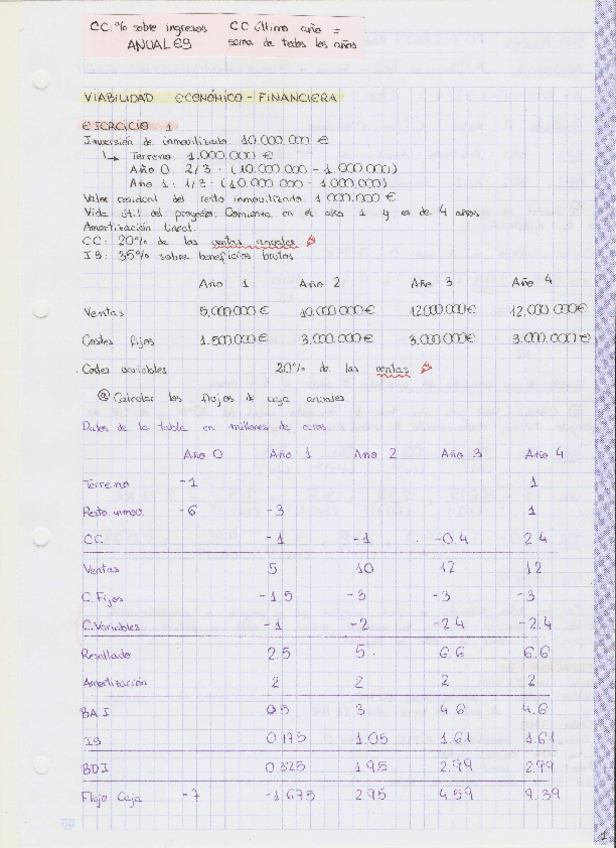 CC: % sobre ingresos CC último año =
ANUALES suma de todos los años
VIABILIDAD ECONÓMICO - FINANCIERA
EJERCICIO 1
Inversión de inmovilizado: 10.000.000 €
↳ Terreno: 1.000.000 €
Año 0: 2/3 · (10.000.000 - 1.000.000)
Año 1: 1/3 · (10.000.000 - 1.000.000)
Valor residual del resto inmovilizado: 1.000.000 €
Vida útil del proyecto: Comienza en el año 1 y es de 4 años
Amortización lineal.
CC: 20% de las ventas anuales
IS: 35% sobre beneficios brutos
Año 1 Año 2 Año 3 Año 4
Ventas 5.000.000 € 10.000.000 € 12.000.000 € 12.000.000 €
Costes fijos 1.500.000 € 3.000.000 € 3.000.000 € 3.000.000 €
Costes variables 20% de las ventas
@ Calcular los flujos de caja anuales
Datos de la tabla en millones de euros.
Año 0 Año 1 Año 2 Año 3 Año 4
Terreno -1 1
Resto inmov. -6 -3 1
CC -1 -1 -0.4 2.4
Ventas 5 10 12 12
C. Fijos -1.5 -3 -3 -3
C. Variables -1 -2 -2.4 -2.4
Resultado 2.5 5 6.6 6.6
Amortización 2 2 2 2
BAI 0.5 3 4.6 4.6
IS 0.175 1.05 1.61 1.61
BDI 0.325 1.95 2.99 2.99
Flujo Caja -7 -1.675 2.95 4.59 9.39
1